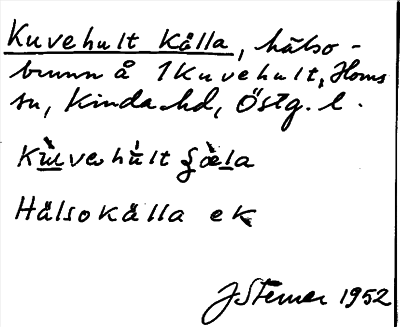 Kuvehult Källa, hälso-
brunn å 1 Kuvehult, Horns
sn, Kinda hd, Östg. l.
Hälsokälla ek
JSterner 1952